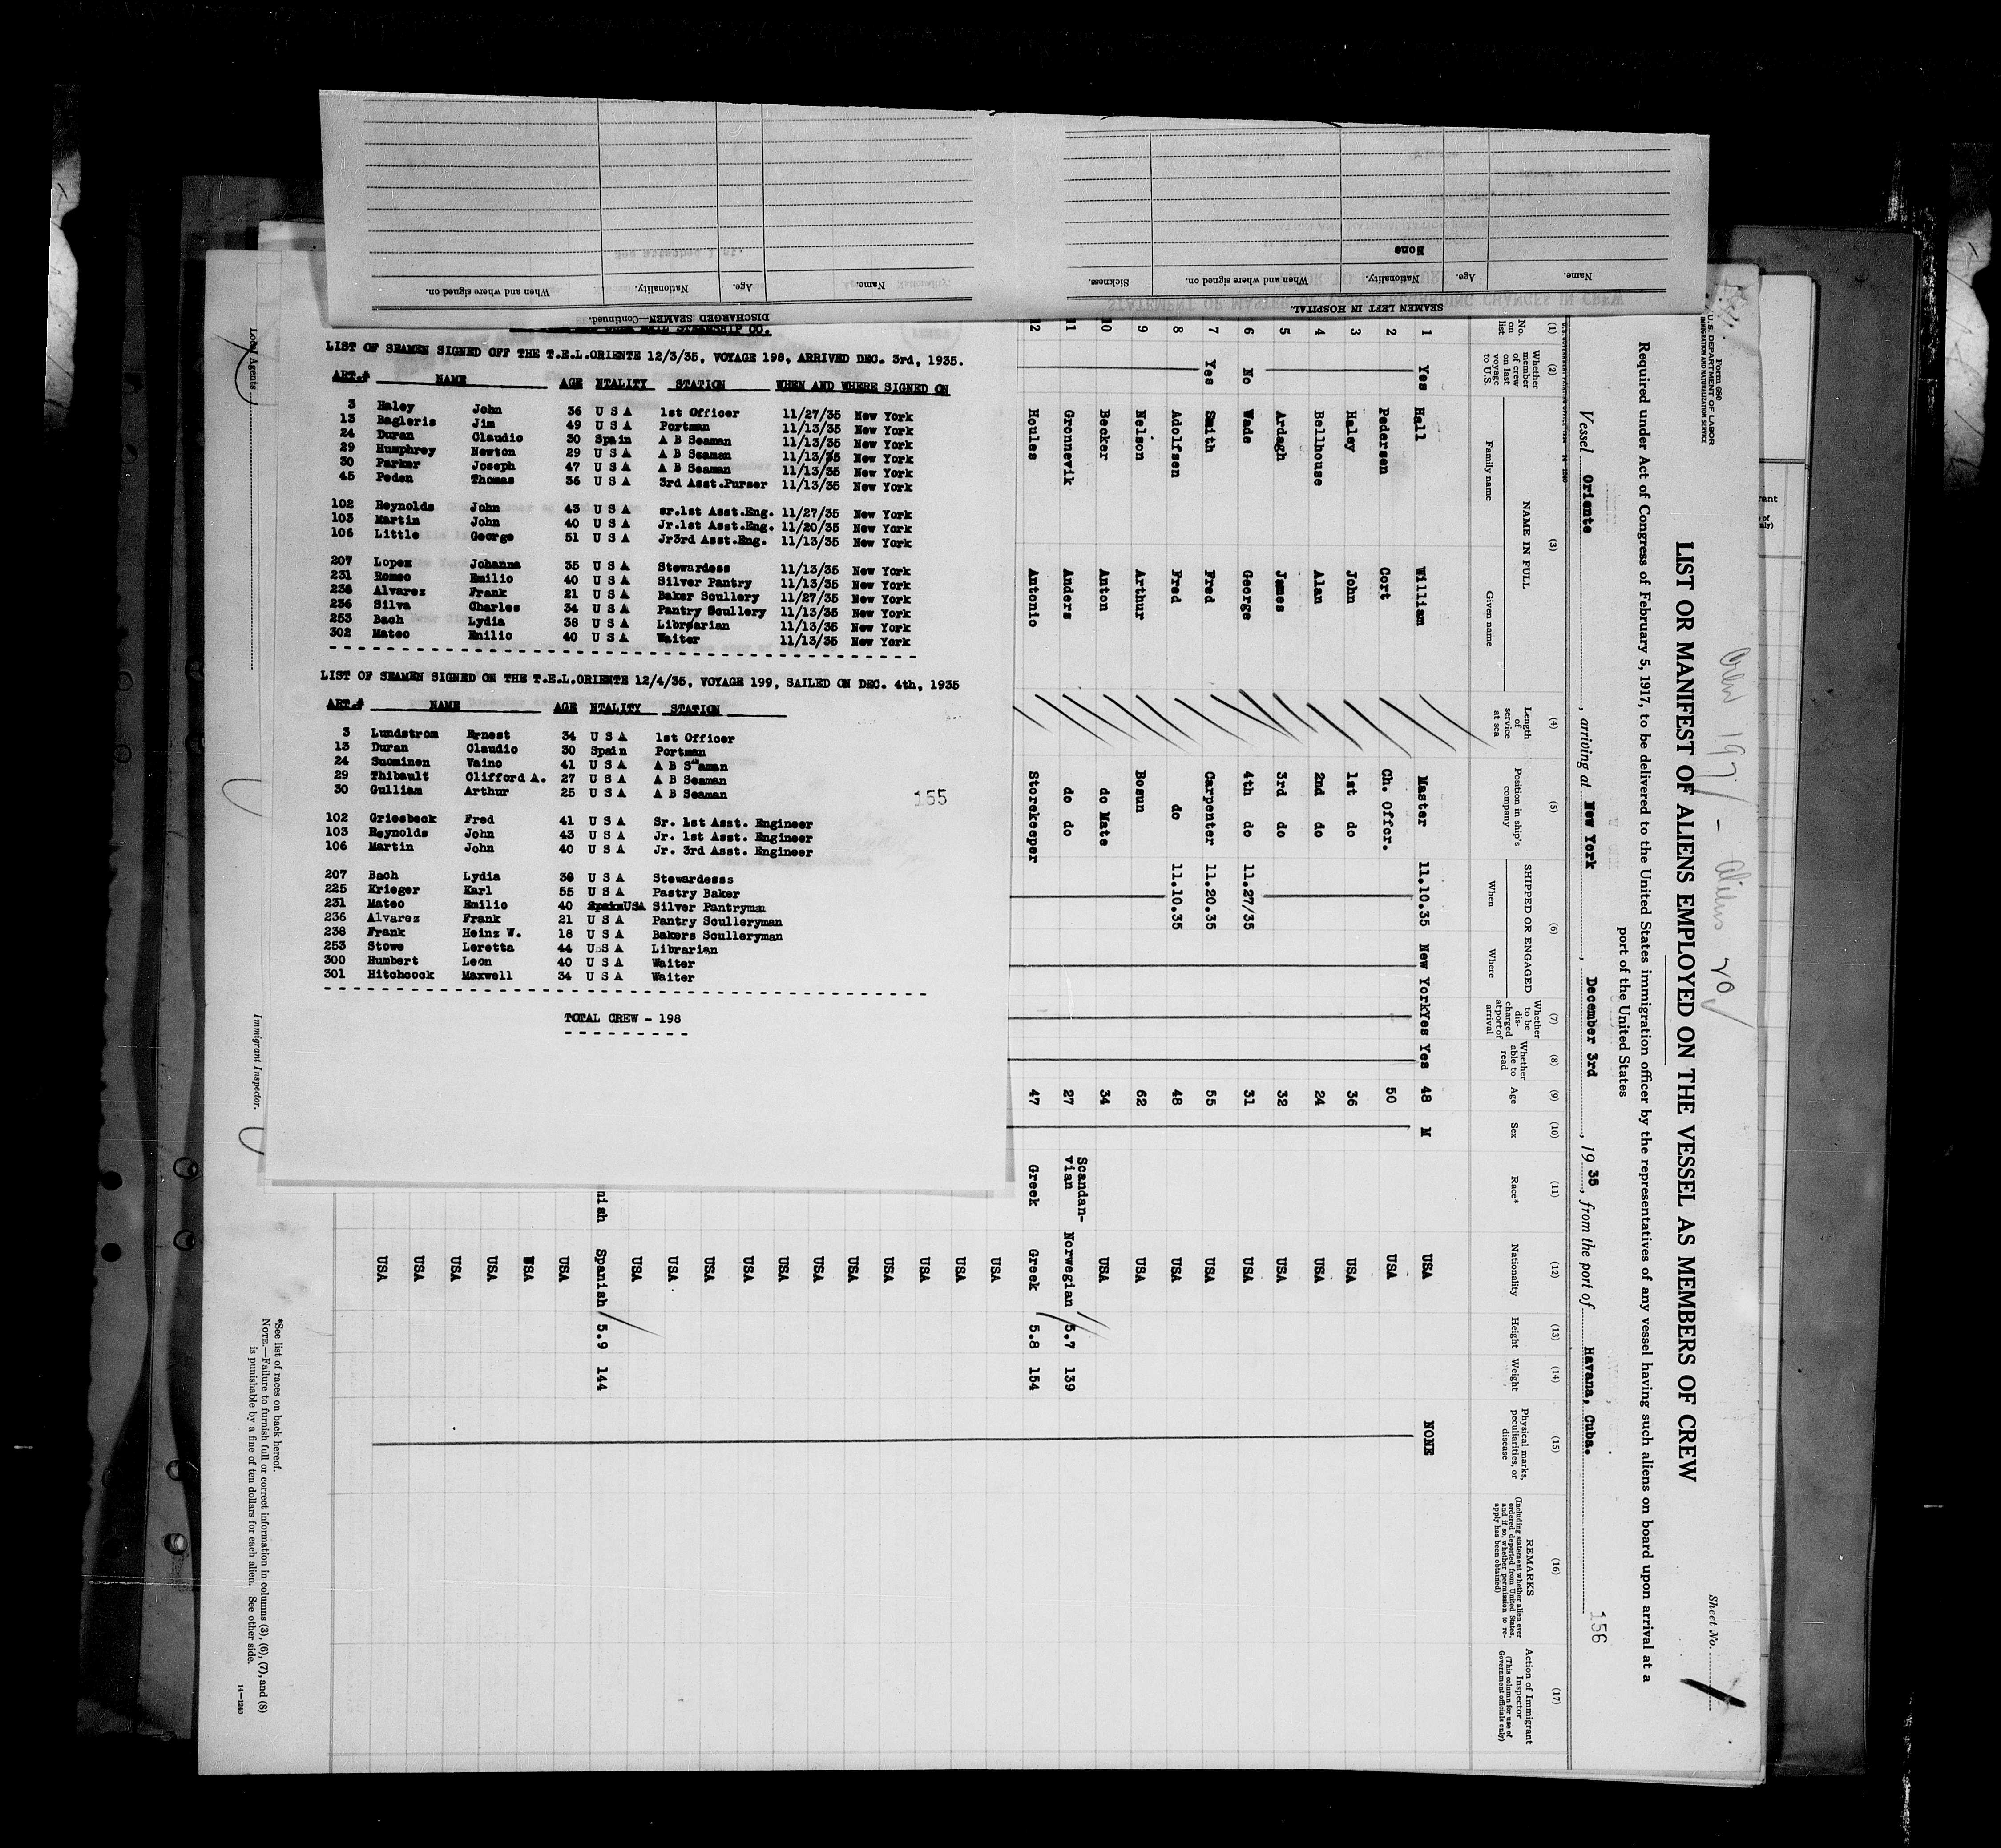 SEAMEN LEFT IN HOSPITAL.
Name. Age. Nationality. When and where signed on. Sickness.
None
DISCHARGED SEAMEN—Continued.
Name. Age. Nationality. When and where signed on.
LIST OF SEAMEN SIGNED OFF THE T.E.L.ORIENTE 12/3/35, VOYAGE 198, ARRIVED DEC. 3rd, 1935.
ART.# NAME AGE NTALITY STATION WHEN AND WHERE SIGNED ON
3 Haley John 36 U S A 1st Officer 11/27/35 New York
13 Bagleris Jim 49 U S A Portman 11/13/35 New York
24 Duran Claudio 30 Spain A B Seaman 11/13/35 New York
29 Humphrey Newton 29 U S A A B Seaman 11/13/35 New York
30 Parker Joseph 47 U S A A B Seaman 11/13/35 New York
45 Peden Thomas 36 U S A 3rd Asst.Purser 11/13/35 New York
102 Reynolds John 43 U S A sr.1st Asst.Eng. 11/27/35 New York
103 Martin John 40 U S A Jr.1st Asst.Eng. 11/20/35 New York
106 Little George 51 U S A Jr3rd Asst.Eng. 11/13/35 New York
207 Lopez Johanna 35 U S A Stewardess 11/13/35 New York
231 Romeo Emilio 40 U S A Silver Pantry 11/13/35 New York
238 Alvarez Frank 21 U S A Baker Scullery 11/27/35 New York
236 Silva Charles 34 U S A Pantry Scullery 11/13/35 New York
253 Bach Lydia 38 U S A Librarian 11/13/35 New York
302 Mateo Emilio 40 U S A Waiter 11/13/35 New York
LIST OF SEAMEN SIGNED ON THE T.E.L.ORIENTE 12/4/35, VOYAGE 199, SAILED ON DEC. 4th, 1935
ART.# NAME AGE NTALITY STATION
3 Lundstrom Ernest 34 U S A 1st Officer
13 Duran Claudio 30 Spain Portman
24 Suominen Vaino 41 U S A A B Seaman
29 Thibault Clifford A. 27 U S A A B Seaman
30 Gulliam Arthur 25 U S A A B Seaman
155
102 Griesbeck Fred 41 U S A Sr. 1st Asst. Engineer
103 Reynolds John 43 U S A Jr. 1st Asst. Engineer
106 Martin John 40 U S A Jr. 3rd Asst. Engineer
207 Bach Lydia 38 U S A Stewardesss
225 Krieger Karl 55 U S A Pastry Baker
231 Mateo Emilio 40 USA Silver Pantryman
236 Alvarez Frank 21 U S A Pantry Sculleryman
238 Frank Heinz W. 18 U S A Bakers Sculleryman
253 Stowe Loretta 44 U S A Librarian
300 Humbert Leon 40 U S A Waiter
301 Hitchcock Maxwell 34 U S A Waiter
TOTAL CREW - 198
Form 680
U. S. DEPARTMENT OF LABOR
IMMIGRATION AND NATURALIZATION SERVICE
Crew 197 - Aliens 20
Sheet No.
LIST OR MANIFEST OF ALIENS EMPLOYED ON THE VESSEL AS MEMBERS OF CREW
Required under Act of Congress of February 5, 1917, to be delivered to the United States immigration officer by the representatives of any vessel having such aliens on board upon arrival at a
port of the United States
Vessel Oriente, arriving at New York, December 3rd, 1935, from the port of Havana, Cuba.
156
(1) (2) (3) (4) (5) (6) (7) (8) (9) (10) (11) (12) (13) (14) (15) (16) (17)
No. on list
Whether member of crew on last voyage to U.S.
NAME IN FULL
Family name
Given name
Length of service at sea
Position in ship's company
SHIPPED OR ENGAGED
When
Where
Whether to be discharged at port of arrival
Whether able to read
Age
Sex
Race*
Nationality
Height
Weight
Physical marks, peculiarities, or disease
REMARKS
(Including statement whether alien ever ordered deported from United States, and if so, whether permission to reapply has been obtained)
Action of Immigrant Inspector
(This column for use of Government officials only)
1 Yes Hall William Master 11.10.35 New York Yes Yes 48 M USA NONE
2 Pedersen Cort Ch. Offcr. 50 USA
3 Haley John 1st do 36 USA
4 Bellhouse Alan 2nd do 24 USA
5 Ardagh James 3rd do 32 USA
6 No Wade George 4th do 11.27/35 31 USA
7 Yes Smith Fred Carpenter 11.20.35 55 USA
8 Adolfsen Fred do 11.10.35 48 USA
9 Nelson Arthur Bosun 62 USA
10 Becker Anton do Mate 34 USA
11 Gronnevik Anders do do 27 Scandanvian Norwegian 5.7 139
12 Houles Antonio Storekeeper 47 Greek Greek 5.8 154
USA
USA
USA
USA
USA
USA
USA
USA
USA
USA
USA
nish Spanish 5.9 144
USA
USA
USA
USA
USA
USA
Local Agents
Immigrant Inspector.
*See list of races on back hereof.
NOTE.—Failure to furnish full or correct information in columns (3), (6), (7), and (8)
is punishable by a fine of ten dollars for each alien. See other side.
14—1240